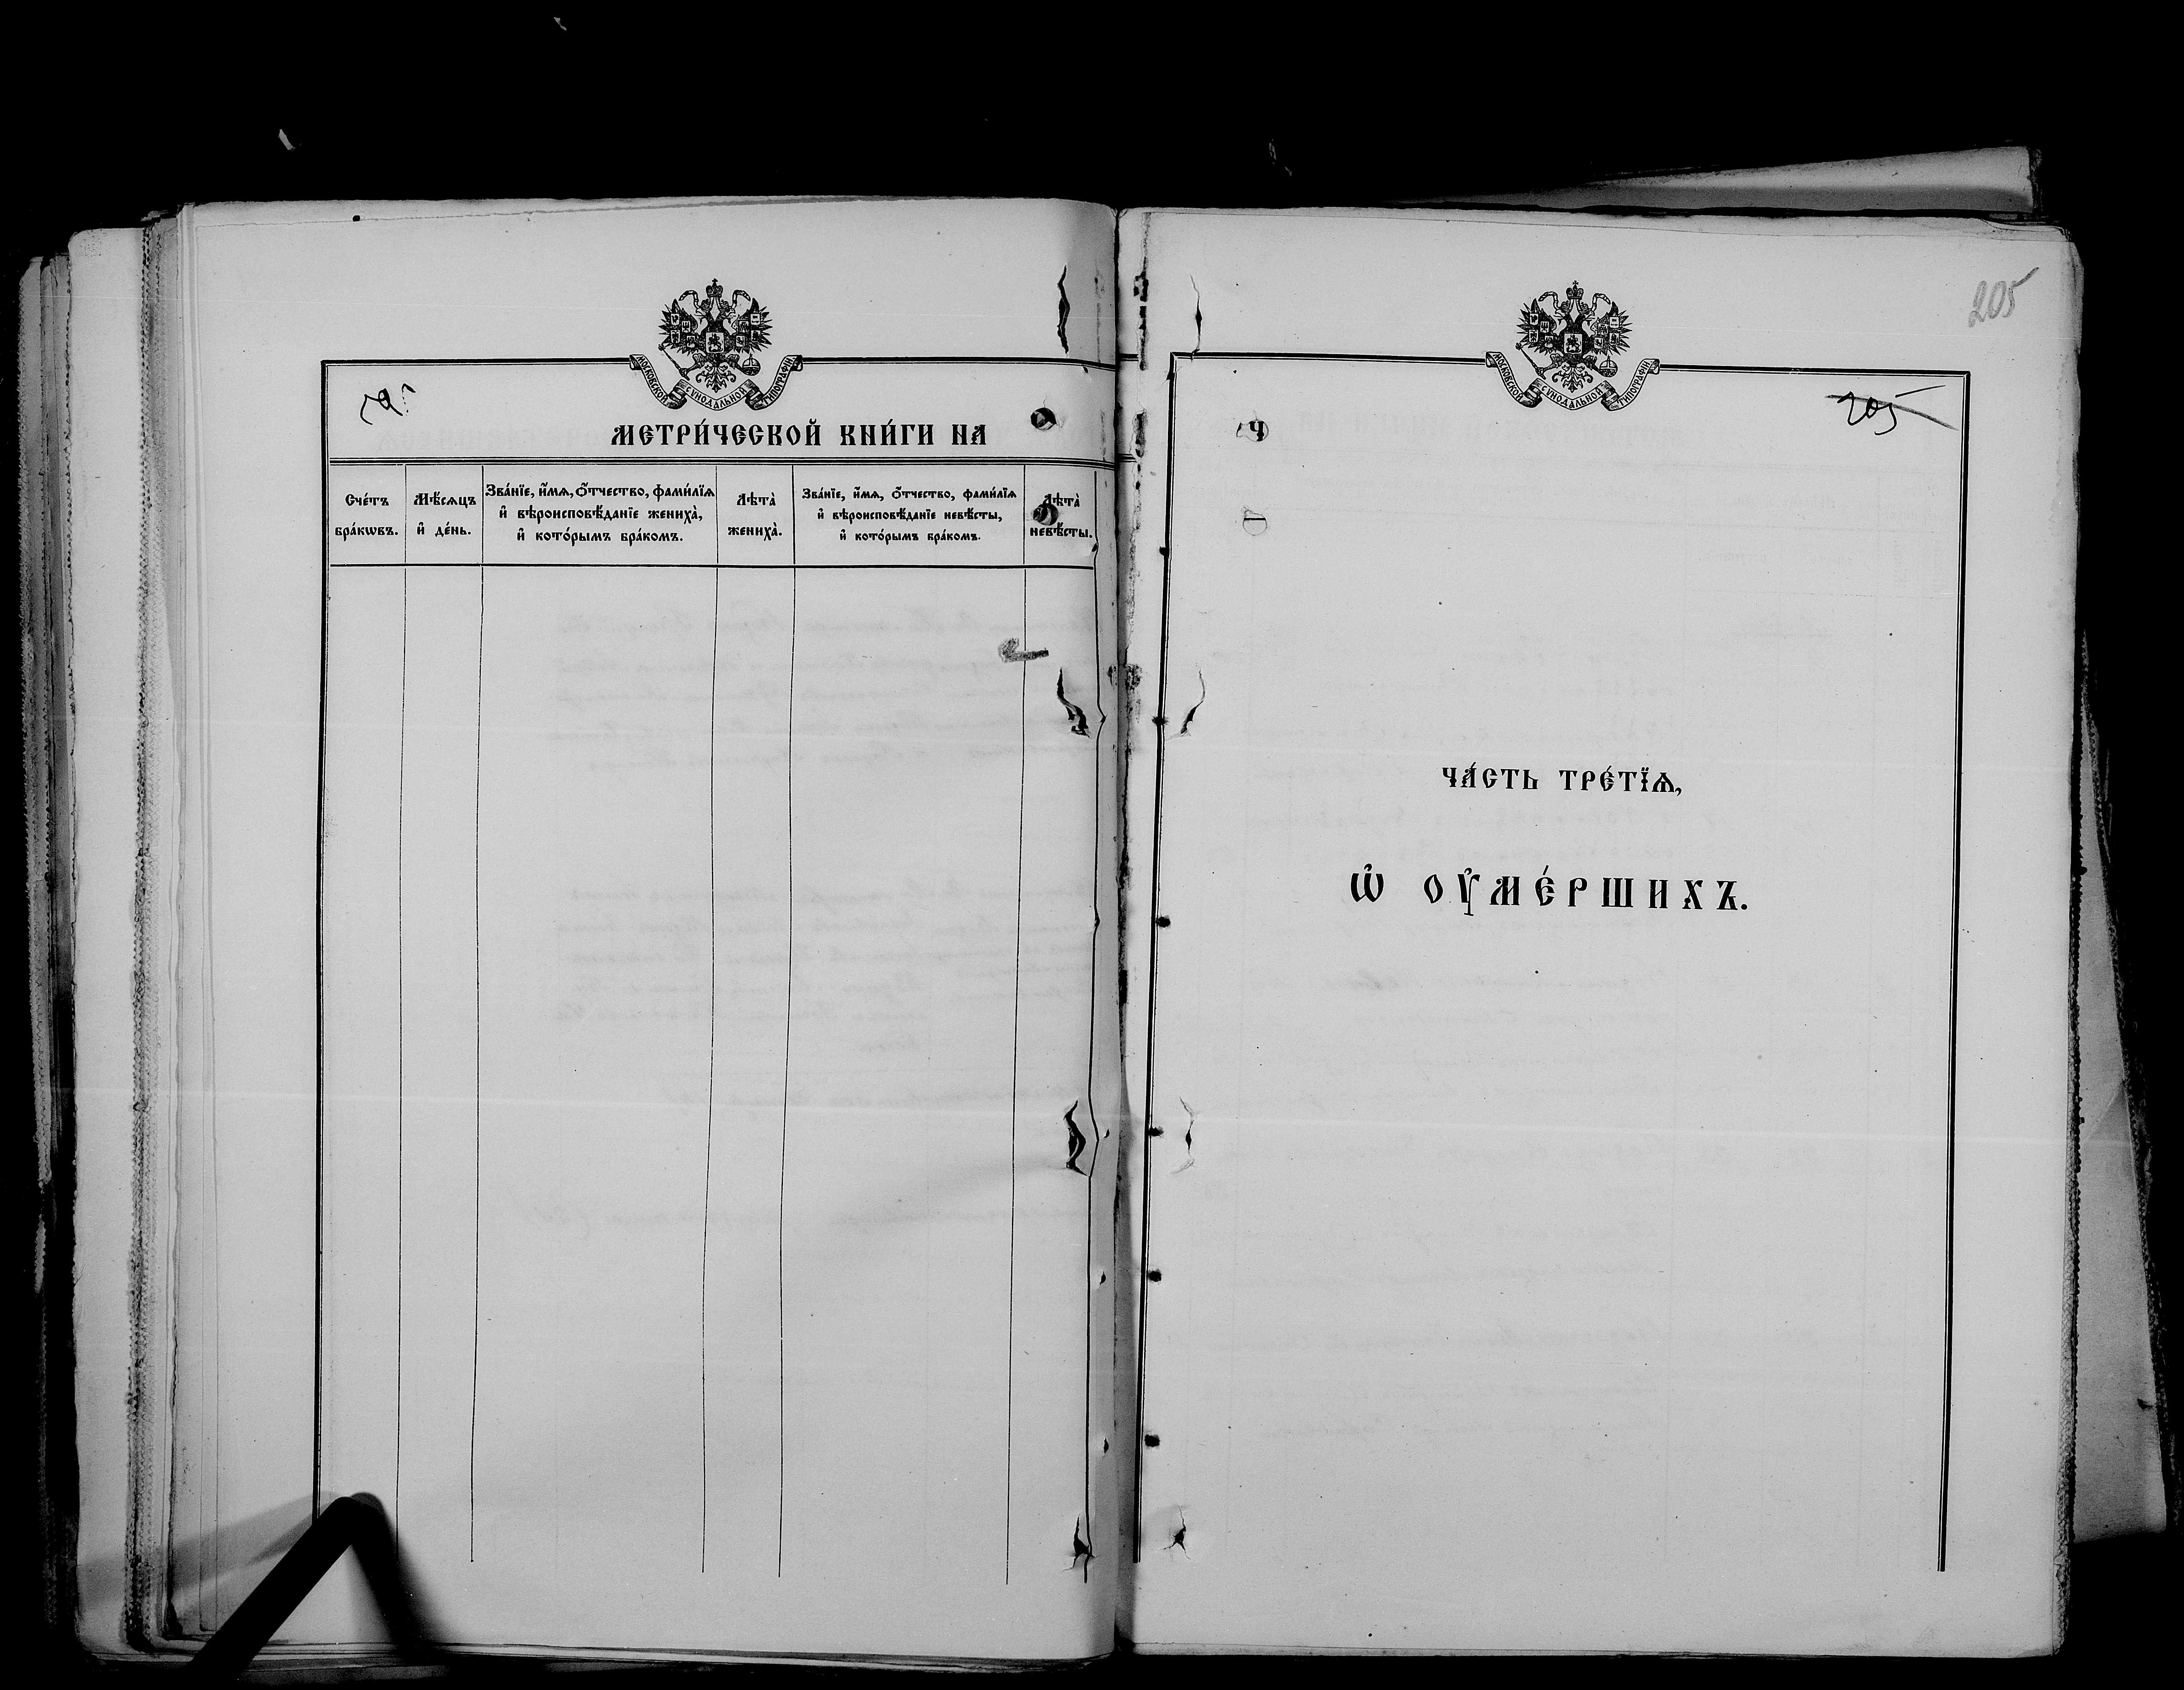 МОСКОВСКОЙ СУНОДАЛЬНОЙ ТИПОГРАФІИ
МЕТРИ́ЧЕСКОЙ КНИ́ГИ НА
Сче́тъ бра́кѡвъ.
Мѣ́сѧцъ и҆ де́нь.
Зва́нїе, и҆́мѧ, ѻ҆́тчество, фами́лїѧ
и҆ вѣроисповѣ́данїе жениха̀,
и҆ кото́рымъ бра́комъ.
Лѣта̀ жениха̀.
Зва́нїе, и҆́мѧ, ѻ҆́тчество, фами́лїѧ
и҆ вѣроисповѣ́данїе невѣ́сты,
и҆ кото́рымъ бра́комъ.
Лѣта̀ невѣ́сты.
205
МОСКОВСКОЙ СУНОДАЛЬНОЙ ТИПОГРАФІИ
205
Ч
ЧА́СТЬ ТРЕ́ТЇѦ,
Ѡ҆ ОУ҆МЕ́РШИХЪ.